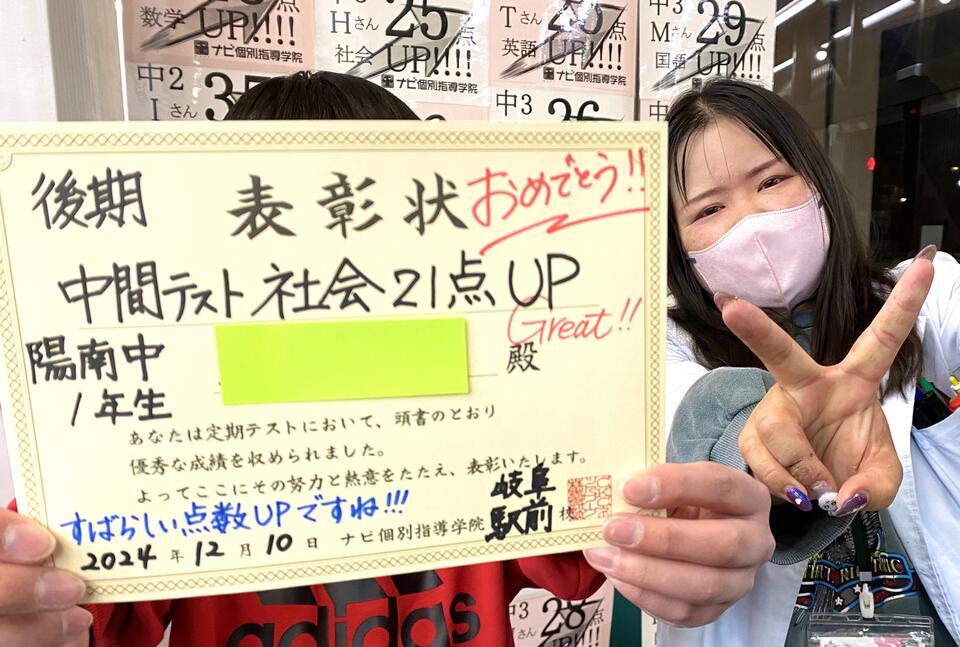 数学 UP!!!!
ナビ個別指導学院
Hさん 25点
社会 UP!!!!
ナビ個別指導学院
Tさん 点
英語 UP!!!!
ナビ個別指導学院
中3
Mさん 29点
国語 UP!!!!
ナビ個別指導学院
中2
Iさん
中3
後期 表彰状 おめでとう!!
中間テスト 社会21点UP
Great!!
陽南中
1年生
殿
あなたは定期テストにおいて、頭書のとおり
優秀な成績を収められました。
よってここにその努力と熱意をたたえ、表彰いたします。
すばらしい点数UPですね!!!
2024年12月10日 ナビ個別指導学院 岐阜駅前校
adidas
中3
28
UP!!!!